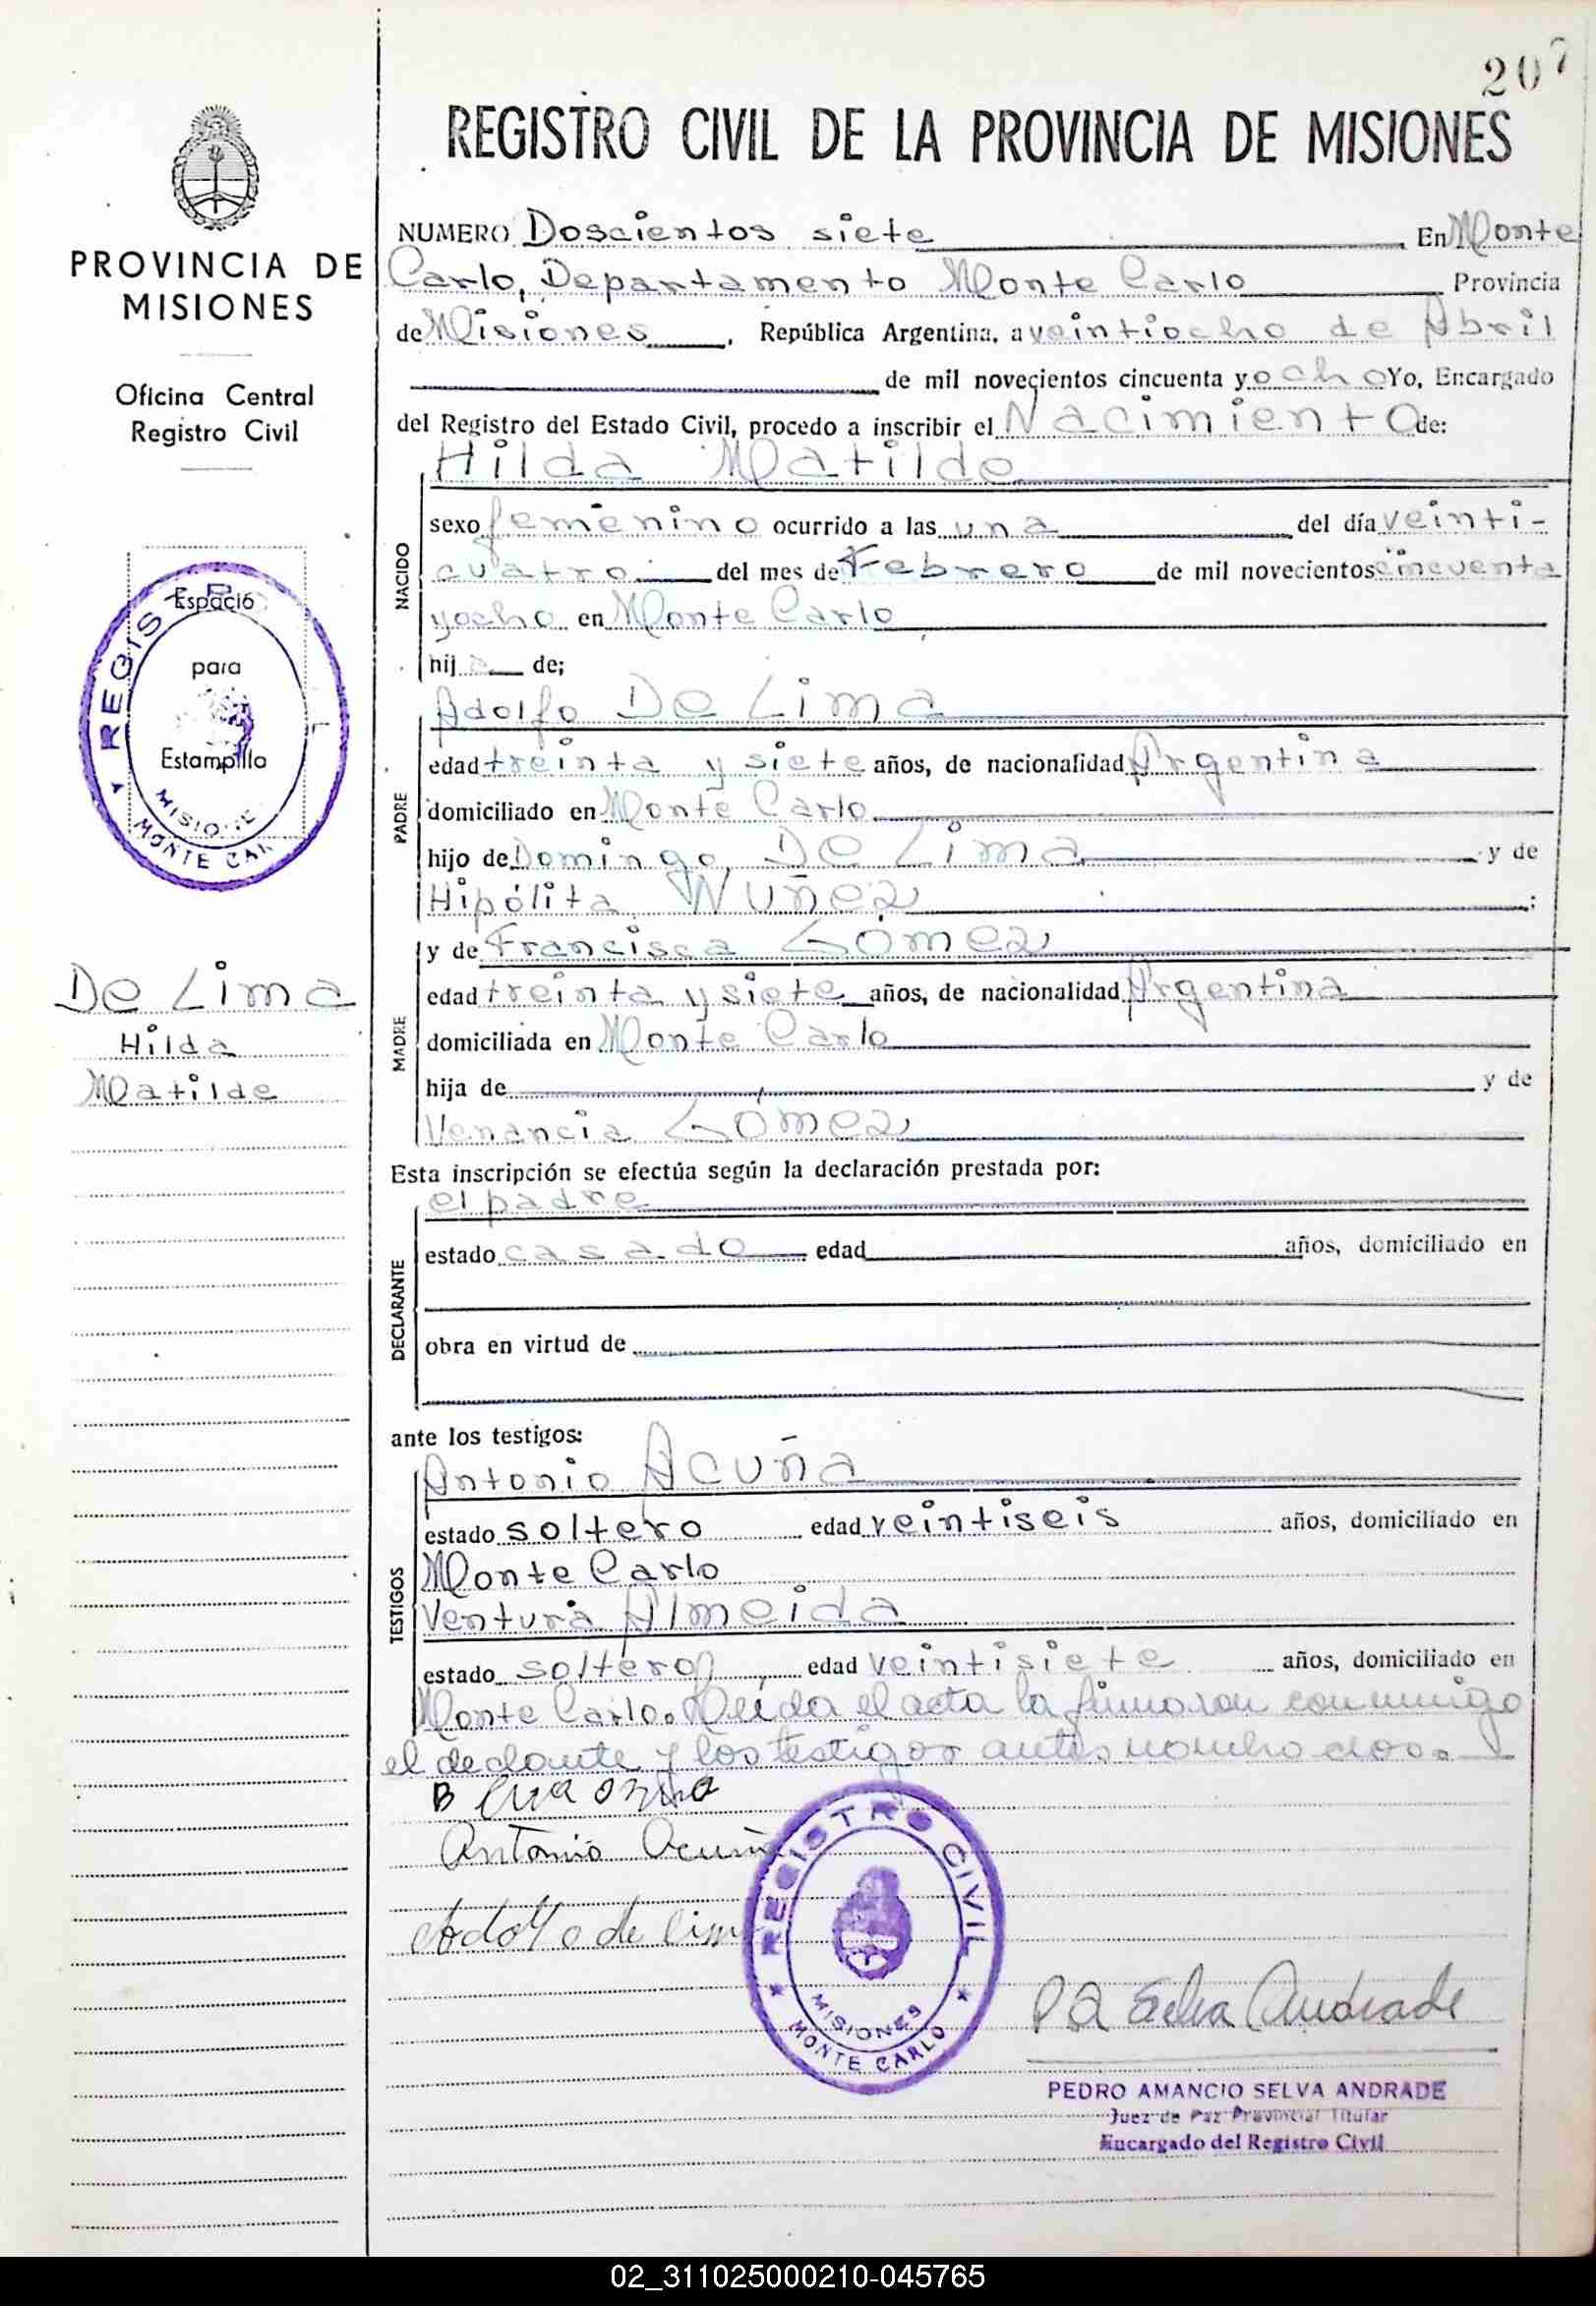 207
REGISTRO CIVIL DE LA PROVINCIA DE MISIONES
PROVINCIA DE
MISIONES
Oficina Central
Registro Civil
Espacio
para
Estampilla
REGIS
MISIONE
MONTE CAR
De Lima
Hilda
Matilde
NUMERO Doscientos siete En Monte
Carlo, Departamento Monte Carlo Provincia
de Misiones, República Argentina, a veintiocho de Abril
de mil novecientos cincuenta y ocho Yo, Encargado
del Registro del Estado Civil, procedo a inscribir el Nacimiento de:
Hilda Matilde
NACIDO
sexo femenino ocurrido a las una del día veinti-
cuatro del mes de Febrero de mil novecientos cincuenta
y ocho en Monte Carlo
hija de;
Adolfo De Lima
PADRE
edad treinta y siete años, de nacionalidad Argentina
domiciliado en Monte Carlo
hijo de Domingo De Lima y de
Hipólita Nuñez ;
y de Francisca Gómez
MADRE
edad treinta y siete años, de nacionalidad Argentina
domiciliada en Monte Carlo
hija de y de
Venancia Gómez
Esta inscripción se efectúa según la declaración prestada por:
el padre
DECLARANTE
estado casado edad años, domiciliado en
obra en virtud de
ante los testigos:
Antonio Acuña
TESTIGOS
estado soltero edad veintiseis años, domiciliado en
Monte Carlo
Ventura Almeida
estado soltero edad veintisiete años, domiciliado en
Monte Carlo. Leida el acta la firmaron conmigo
el declante y los testigos antes nombrados.
Antonio Acuñ
Adolfo de Lim
REGISTRO CIVIL
MISIONES
MONTE CARLO
P A Selva Andrade
PEDRO AMANCIO SELVA ANDRADE
Juez de Paz Provincial Titular
Encargado del Registro Civil
02_311025000210-045765